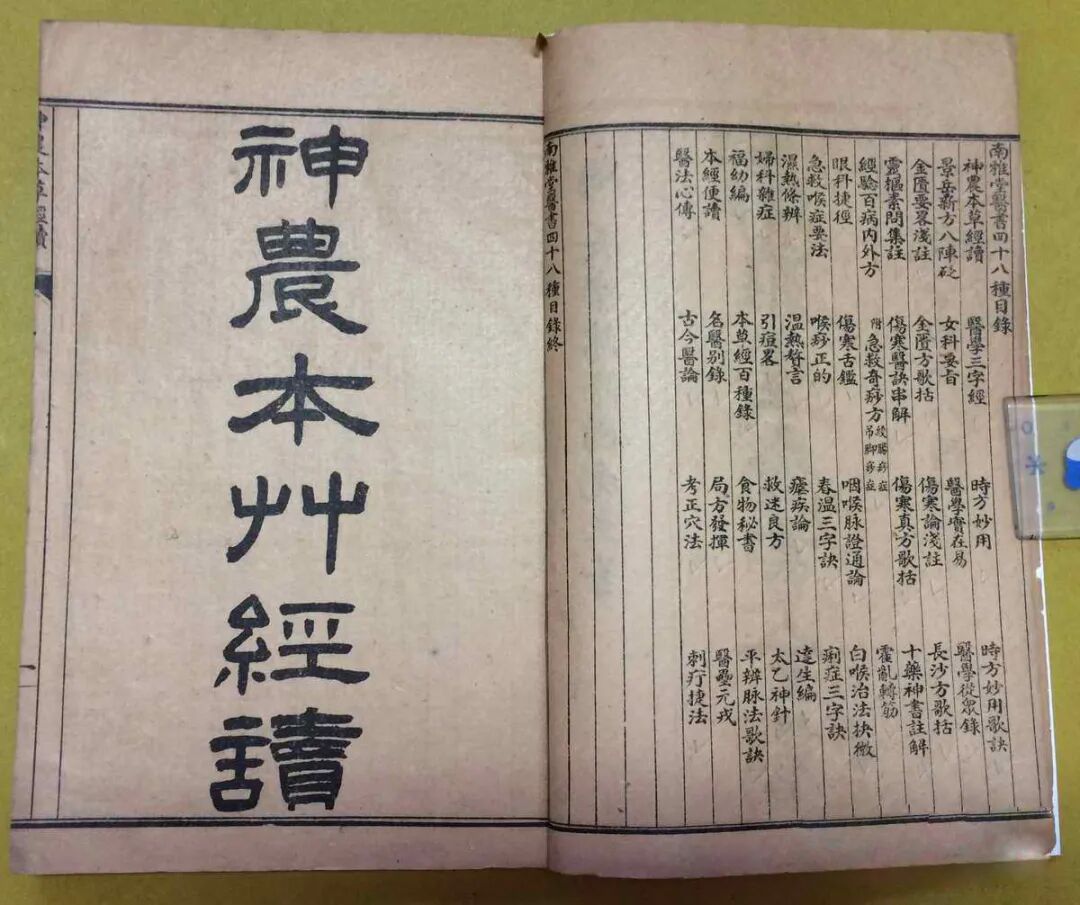 南雅堂醫書四十八種目錄
神農本草經讀 醫學三字經 時方妙用 時方妙用歌訣
景岳新方八陣砭 女科要旨 醫學實在易 醫學從眾錄
金匱要畧淺註 金匱方歌括 傷寒論淺註 長沙方歌括
靈樞素問集註 傷寒醫訣串解 傷寒真方歌括 十藥神書註解
經驗百病內外方 附急救奇痧方 絞腸痧症 吊脚痧症 霍亂轉筋
眼科捷徑 傷寒舌鑑 咽喉脉證通論 白喉治法抉微
急救喉症要法 喉痧正的 春温三字訣 痢症三字訣
濕熱條辨 温熱贅言 瘧疾論 達生編
婦科雜症 引痘畧 救迷良方 太乙神針
福幼編 本草經百種錄 食物秘書 平辨脉法歌訣
本經便讀 名醫別錄 局方發揮 醫壘元戎
醫法心傳 古今醫論 考正穴法 刺疔捷法
南雅堂醫書四十八種目錄終
神農本艸經讀
神農本草經讀
一